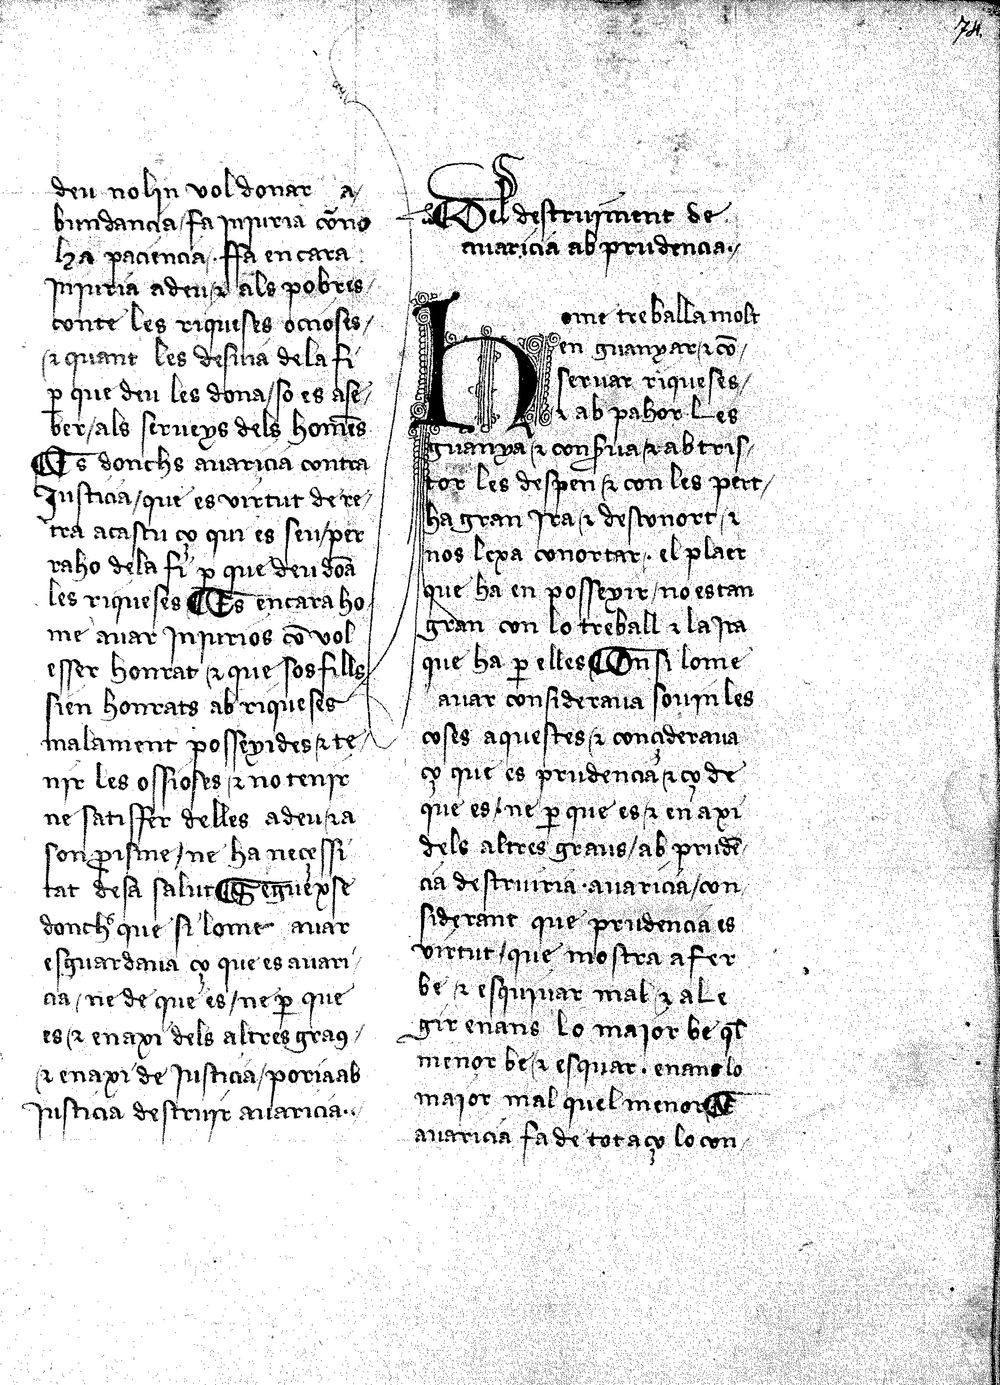 74.
deu no lin vol donar a/
bundancia/fa injuria cōno
ha paciencia. Ffa encara
Injuria a deu/⁊ als pobres/
conte les riqueses ocioses/
⁊ quant les desuia de la fi
p̱ que deu les dona/so es a se/
ber/als serueys dels homēs
Es donchs auaricia contra
Justicia/que es virtut de re/
tra a cascu ço qui es seu/per
raho de la fi p̱ que deu dōa
les riqueses Es encara ho/
me auar Injurios cō vol
esser honrat ⁊ que sos fills
sien honrats ab riqueses
malament posseyides ⁊ te/
nir les ossioses ⁊ no tenir
ne satisffer delles a deu/⁊ a
son p̱isme/ne ha neçessi
tat de sa salut Segueyxse
donchs que si lome auar
esguardaua ço que es auari/
cia/ne de que es/ne p̱ que
es/⁊ enaxi dels altres graus/
⁊ enaxi de Justicia/poria ab
Justicia destruir auaricia..
Del destruiment de
auaricia ab prudencia..
home treballa molt
en guanyar/⁊ cō/
seruar riqueses/
⁊ ab pahor Les
guanya ⁊ conserua/⁊ ab tris/
tor les despen ⁊ con les pert/
ha gran Ira ⁊ desconort/⁊
nos lexa conortar. el plaer
que ha en posseyir/no es tan
gran con lo treball ⁊ la Ira
que ha p̱ elles On si lome
auar consideraua souin les
coses aquestes/⁊ conçideraua
ço que es prudencia/⁊ ço de
que es/ne p̱ que es/⁊ en axi
dels altres graus/ab prudē/
cia destruiria auaricia/con/
siderant que prudencia es
virtut/que mostra a fer
be ⁊ esquiuar mal ⁊ a Le
gir enans lo maior be ql̄
menor be/⁊ esquar. enans lo
maior mal quel menor E
auaricia fa de tot aço lo con/